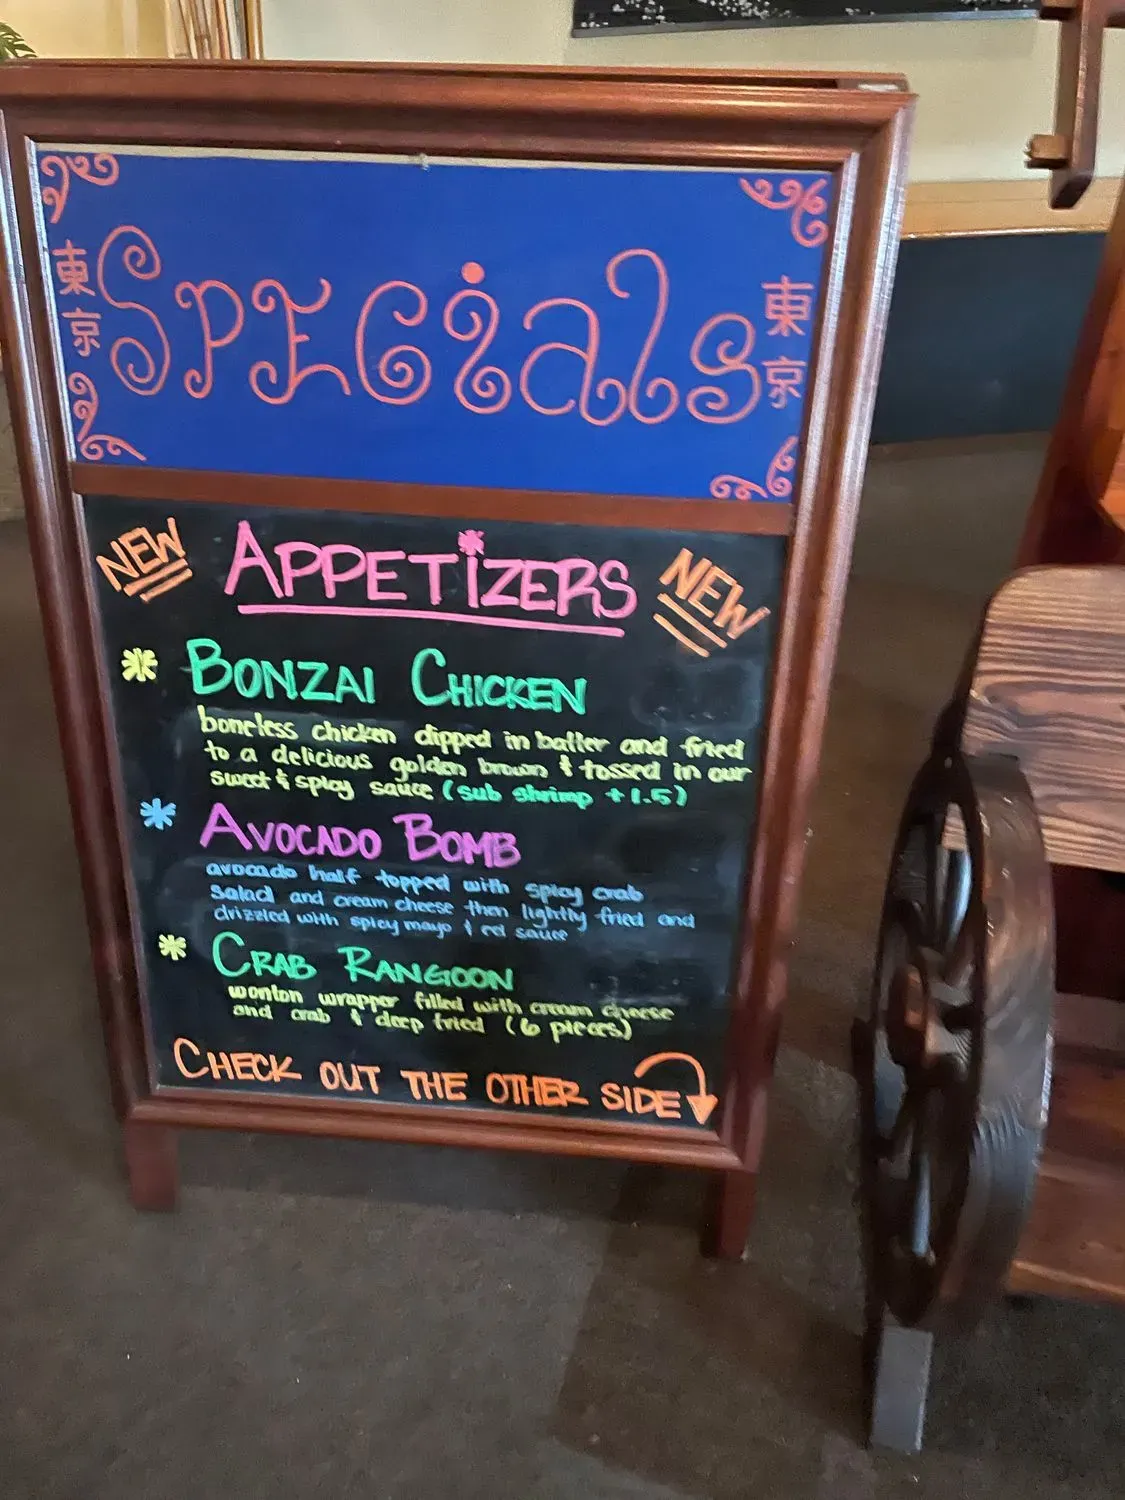 東京
SPECiAls
東京
NEW
APPETiZERS
NEW
BONZAI CHICKEN
boneless chicken dipped in batter and fried
to a delicious golden brown & tossed in our
sweet & spicy sauce (sub shrimp +1.5)
AVOCADO BOMB
avocado half topped with spicy crab
salad and cream cheese then lightly fried and
drizzled with spicy mayo & red sauce
CRAB RANGOON
wonton wrapper filled with cream cheese
and crab & deep fried (6 pieces)
CHECK OUT THE OTHER SIDE